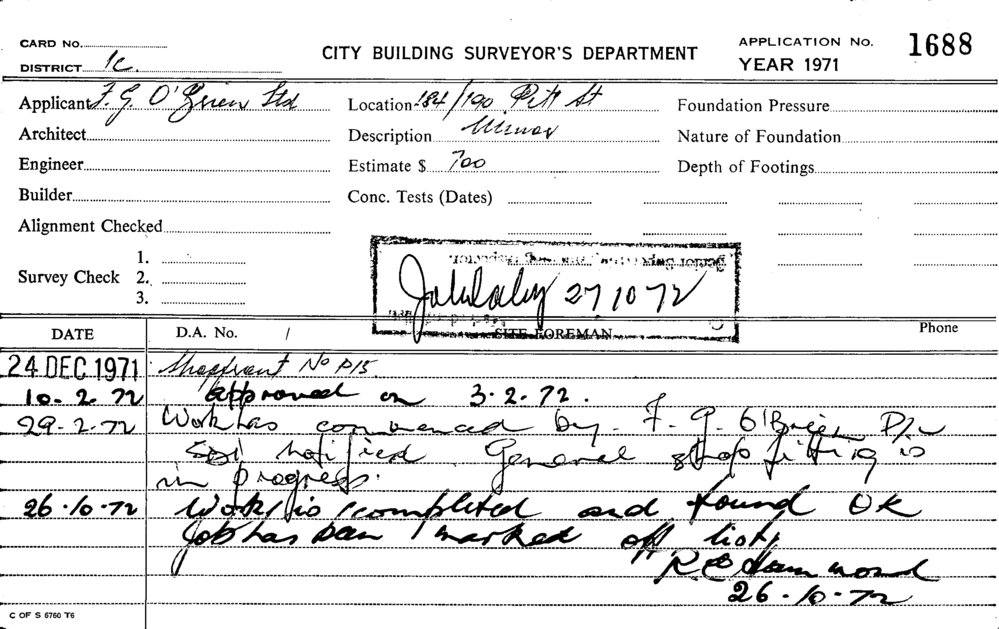 CARD No.
DISTRICT 1C.
CITY BUILDING SURVEYOR'S DEPARTMENT
APPLICATION No. 1688
YEAR 1971
Applicant F. G. O'Brien Ltd
Location 184/190 Pitt St
Foundation Pressure
Architect
Description Minor
Nature of Foundation
Engineer
Estimate $ 700
Depth of Footings
Builder
Conc. Tests (Dates)
Alignment Checked
Survey Check
1.
2.
3.
27 10 72
SITE FOREMAN
Phone
DATE D.A. No. /
24 DEC 1971 Shopfront No P15
10-2-72 approved on 3.2.72.
29-2-72 Work has commenced by F. G. O'Brien P/L
notified General shop fitting is
in progress.
26.10-72 Work is completed and found OK
Job has been marked off list,
R E Hammond
26-10-72
C OF S 6760 T6